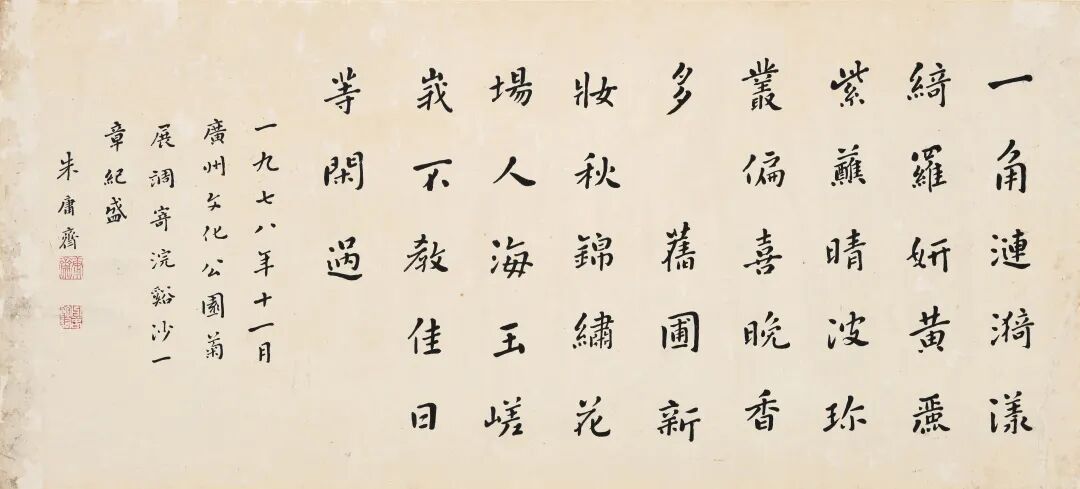 一角漣漪漾
綺羅妍黃
紫蘸晴波珍
叢偏喜晚香
多 舊圃新
妝秋錦繡花
場人海玉嵯
峩不教佳日
等閑過
一九七八年十一月
廣州文化公園菊
展調寄浣谿沙一
章紀盛
朱庸齋